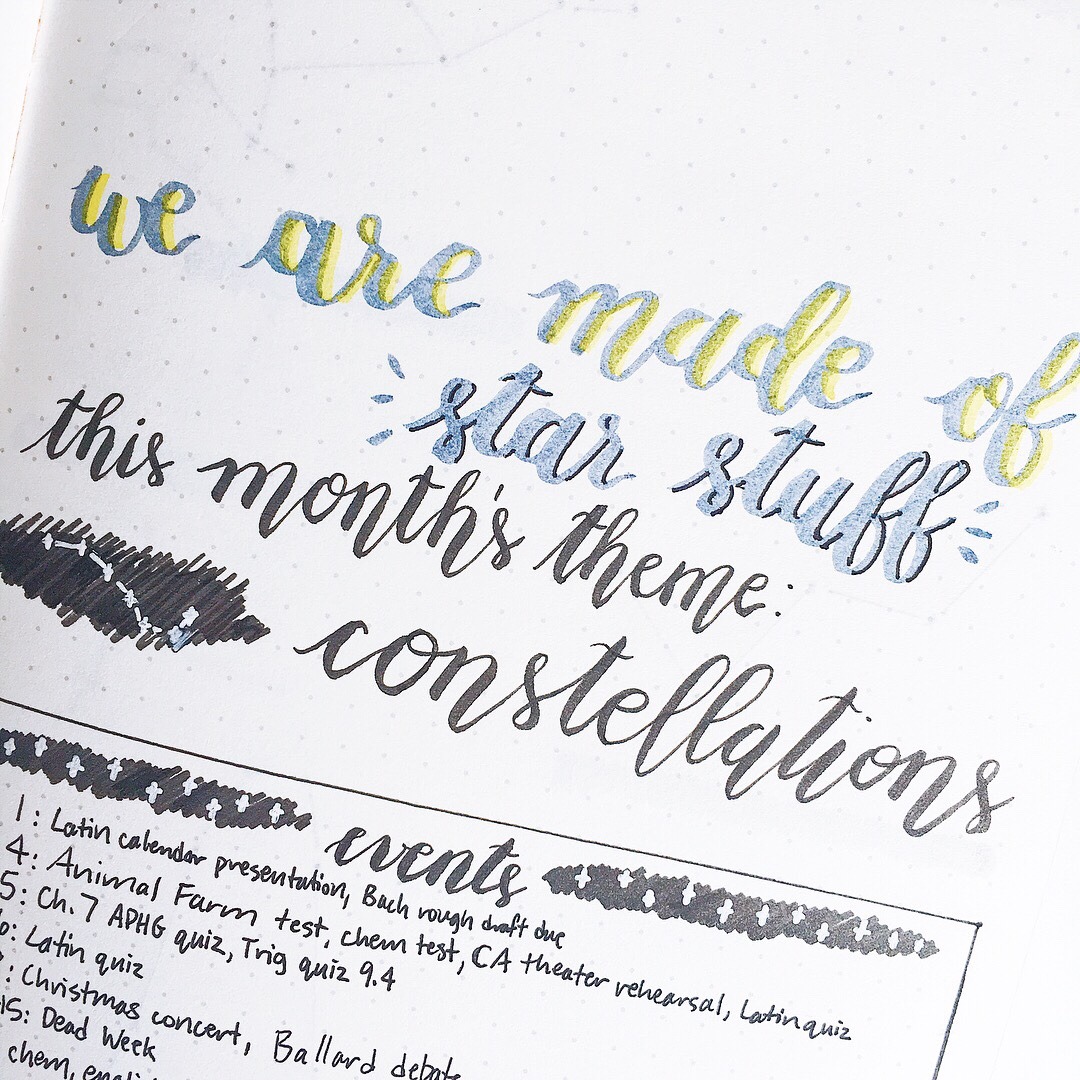 we are made of
star stuff
this month's theme:
constellations
events
1: Latin calendar presentation, Bach rough draft due
4: Animal Farm test, chem test, CA theater rehearsal, Latin quiz
5: Ch. 7 APHG quiz, Trig quiz 9.4
: Latin quiz
: Christmas concert, Ballard debate
15: Dead Week
chem,